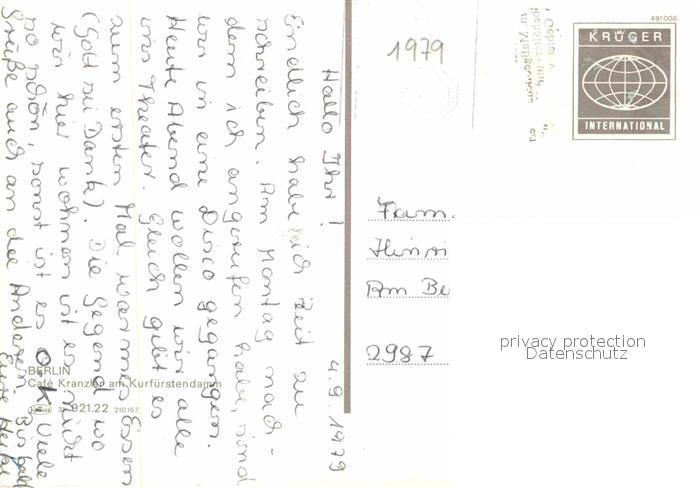 Hallo Ihr! 4.9.1979
Endlich habe ich Zeit zu
schreiben. Am Montag nach-
dem ich angerufen habe, sind
wir in eine Disco gegangen.
Heute Abend wollen wir alle
ins Theater. Gleich gibt es
zum ersten Mal warmes Essen
(Gott sei Dank). Die Gegend wo
wir hier wohnen ist es nicht
so schön, sonst ist es O.K. Viele
Grüße auch an die Anderen. Bis bald
Eure Heike
BERLIN
Café Kranzler am Kurfürstendamm
921.22 210167
1979
491008
KRÜGER
INTERNATIONAL
Fam.
Hinri
Am Be
2987
privacy protection
Datenschutz